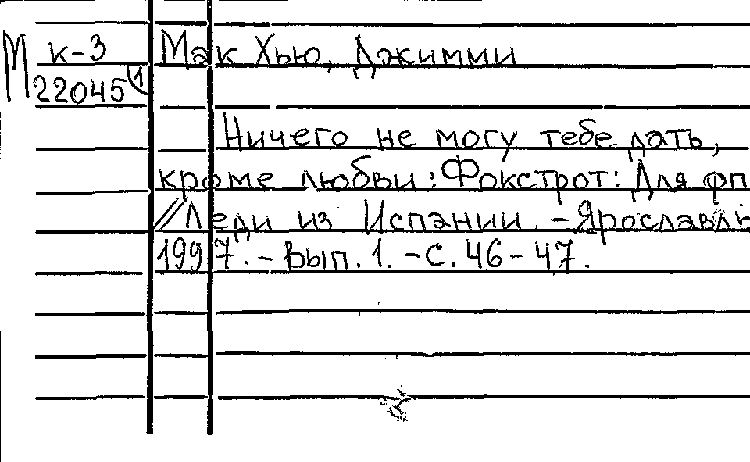 М к-3 Мак Хью, Джимми
22045 (1
Ничего не могу тебе дать,
кроме любви: Фокстрот: Для фп
//Леди из Испании. - Ярославль
1997. - Вып. 1. - С. 46-47.